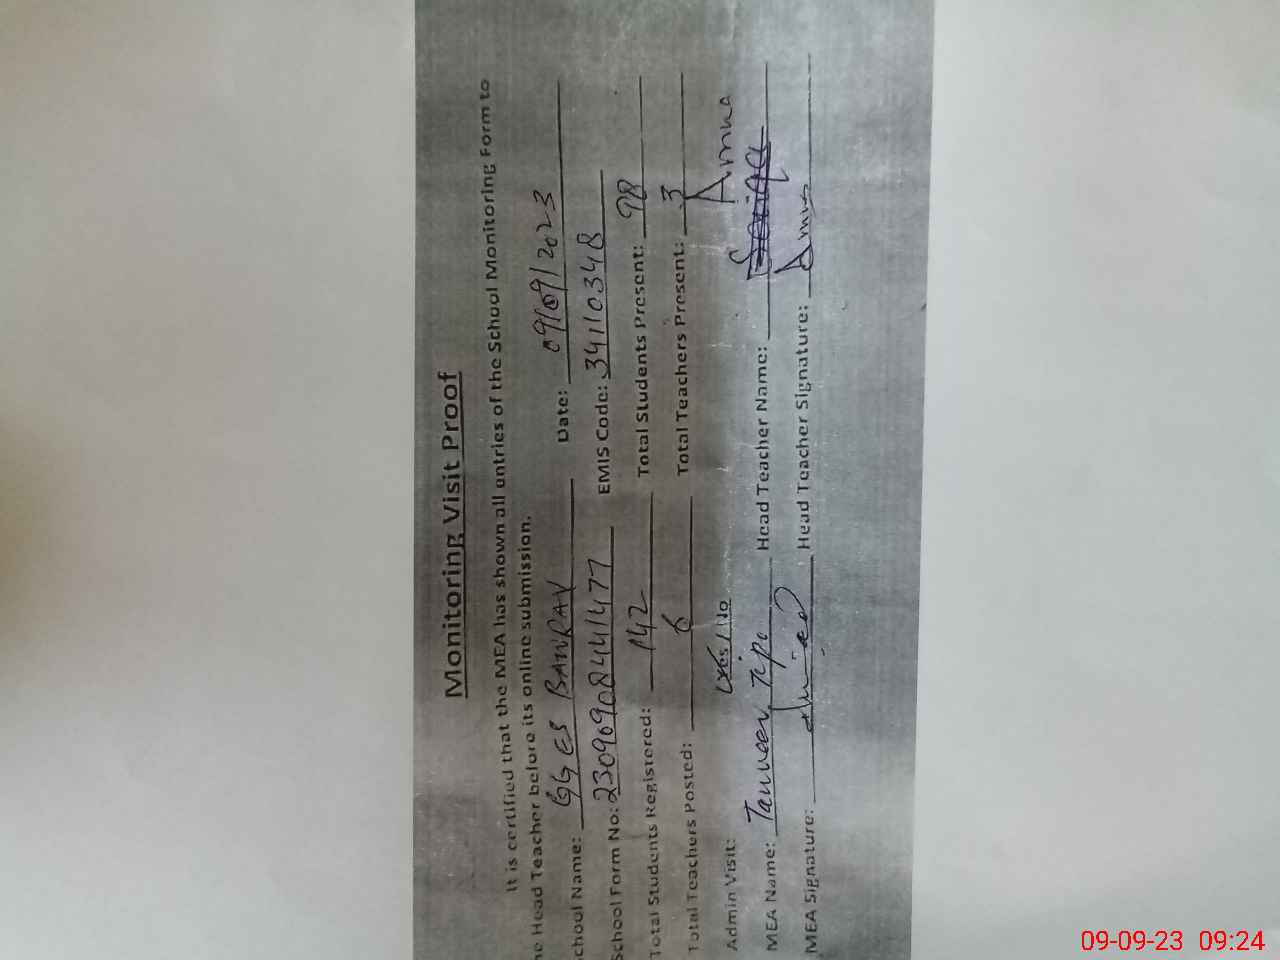 Monitoring Visit Proof
It is certified that the MEA has shown all entries of the School Monitoring Form to
he Head Teacher before its online submission.
chool Name: GGES BANRAY Date: 09/09/2023
School Form No: 23090908441477 EMIS Code: 34110348
Total Students Registered: 142 Total Students Present: 98
Total Teachers Posted: 6 Total Teachers Present: 3
Admin Visit: Yes / No Amna
MEA Name: Tanveer Tipo Head Teacher Name:
MEA Signature: Head Teacher Signature: Amna
09-09-23 09:24